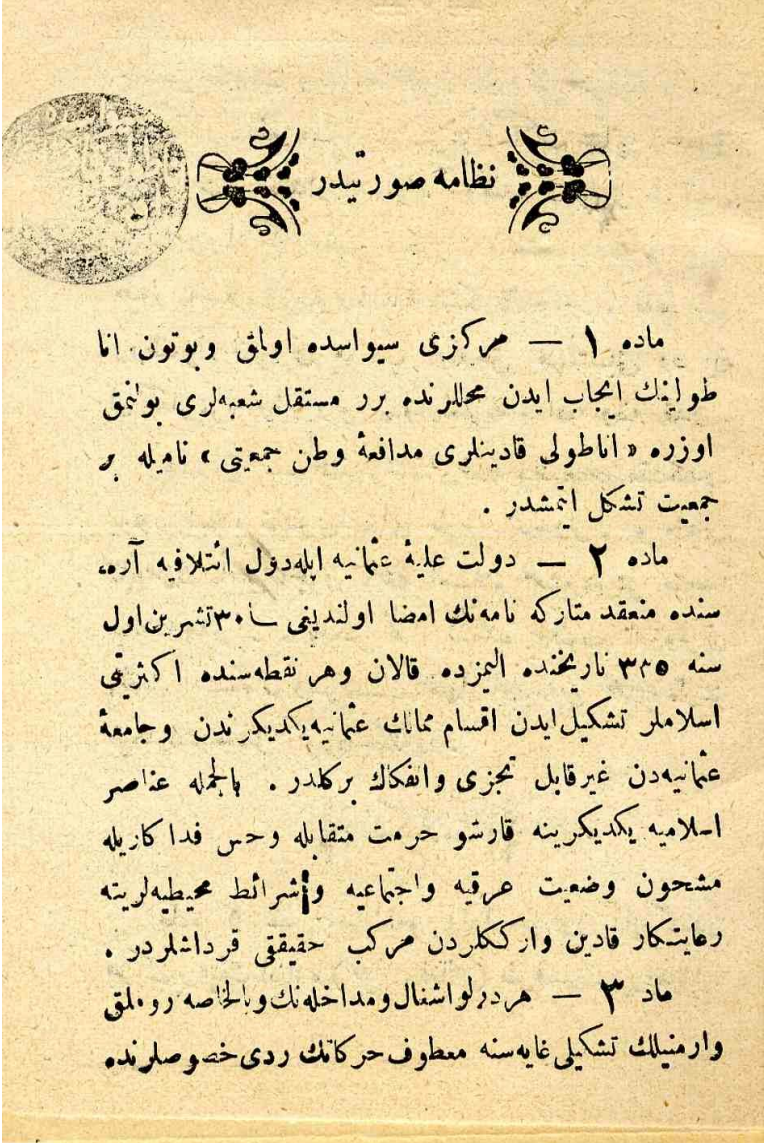 نظامه صورتيدر
ماده ١ — مركزى سيواسده اولمق وبوتون انا
طولينك ايجاب ايدن محللرنده برر مستقل شعبه‌لرى بولنمق
اوزره « اناطولى قادينلرى مدافعۀ وطن جمعيتى » ناميله بر
جمعيت تشكل ايتمشدر .
ماده ٢ — دولت عليۀ عثمانيه ايله‌دول ائتلافيه آره‌
سنده منعقد متاركه نامه‌نك امضا اولنديغى ٣٠ تشرين اول
سنه ٣٣٥ تاريخنده اليمزده قالان وهر نقطه‌سنده اكثريتى
اسلاملر تشكيل ايدن اقسام ممالك عثمانيه يكديكرندن وجامعۀ
عثمانيه‌دن غيرقابل تجزى وانفكاك بركلدر . بالجمله عناصر
اسلاميه يكديكرينه قارشو حرمت متقابله وحس فداكاريله
مشحون وضعيت عرقيه واجتماعيه وشرائط محيطيه‌لرينه
رعايتكار قادين واركككلردن مركب حقيقى قرداشلردر .
ماد ٣ — هردرلو اشغال ومداخله‌نك وبالخاصه روملق
وارمنيلك تشكيلى غايه‌سنه معطوف حركاتك ردى خصوصلرنده